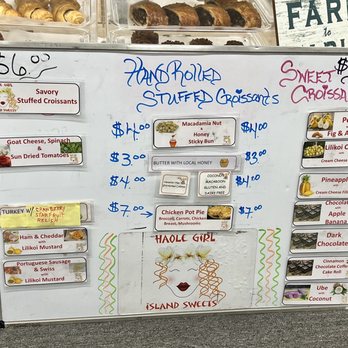 FAR
$6.00
HAND ROLLED
STUFFED CROISSANTS
SWEET
CROISSA
Savory
Stuffed Croissants
Goat Cheese, Spinach &
Sun Dried Tomatoes
TURKEY W/ CRANBERRY
Ham & Cheddar
with
Lilikoi Mustard
Portuguese Sausage
& Swiss
with
Lilikoi Mustard
$4.00
Macadamia Nut
&
Honey
Sticky Bun
$4.00
$3.00
BUTTER WITH LOCAL HONEY
$3.00
$4.00
COCONUT
MACAROON
GLUTEN AND
DAIRY FREE
$4.00
$7.00
Chicken Pot Pie
Broccoli, Carrots, Chicken
Breast, Mushrooms
$7.00
HAOLE GIRL
ISLAND SWEETS
Fig & A
Lilikoi C
Pineapple
Cream Cheese Fille
Chocolate
Apple
Banana
Dark
Chocolate
Cinnamon
Chocolate Coffee
Cake Roll
Ube
with
Coconut